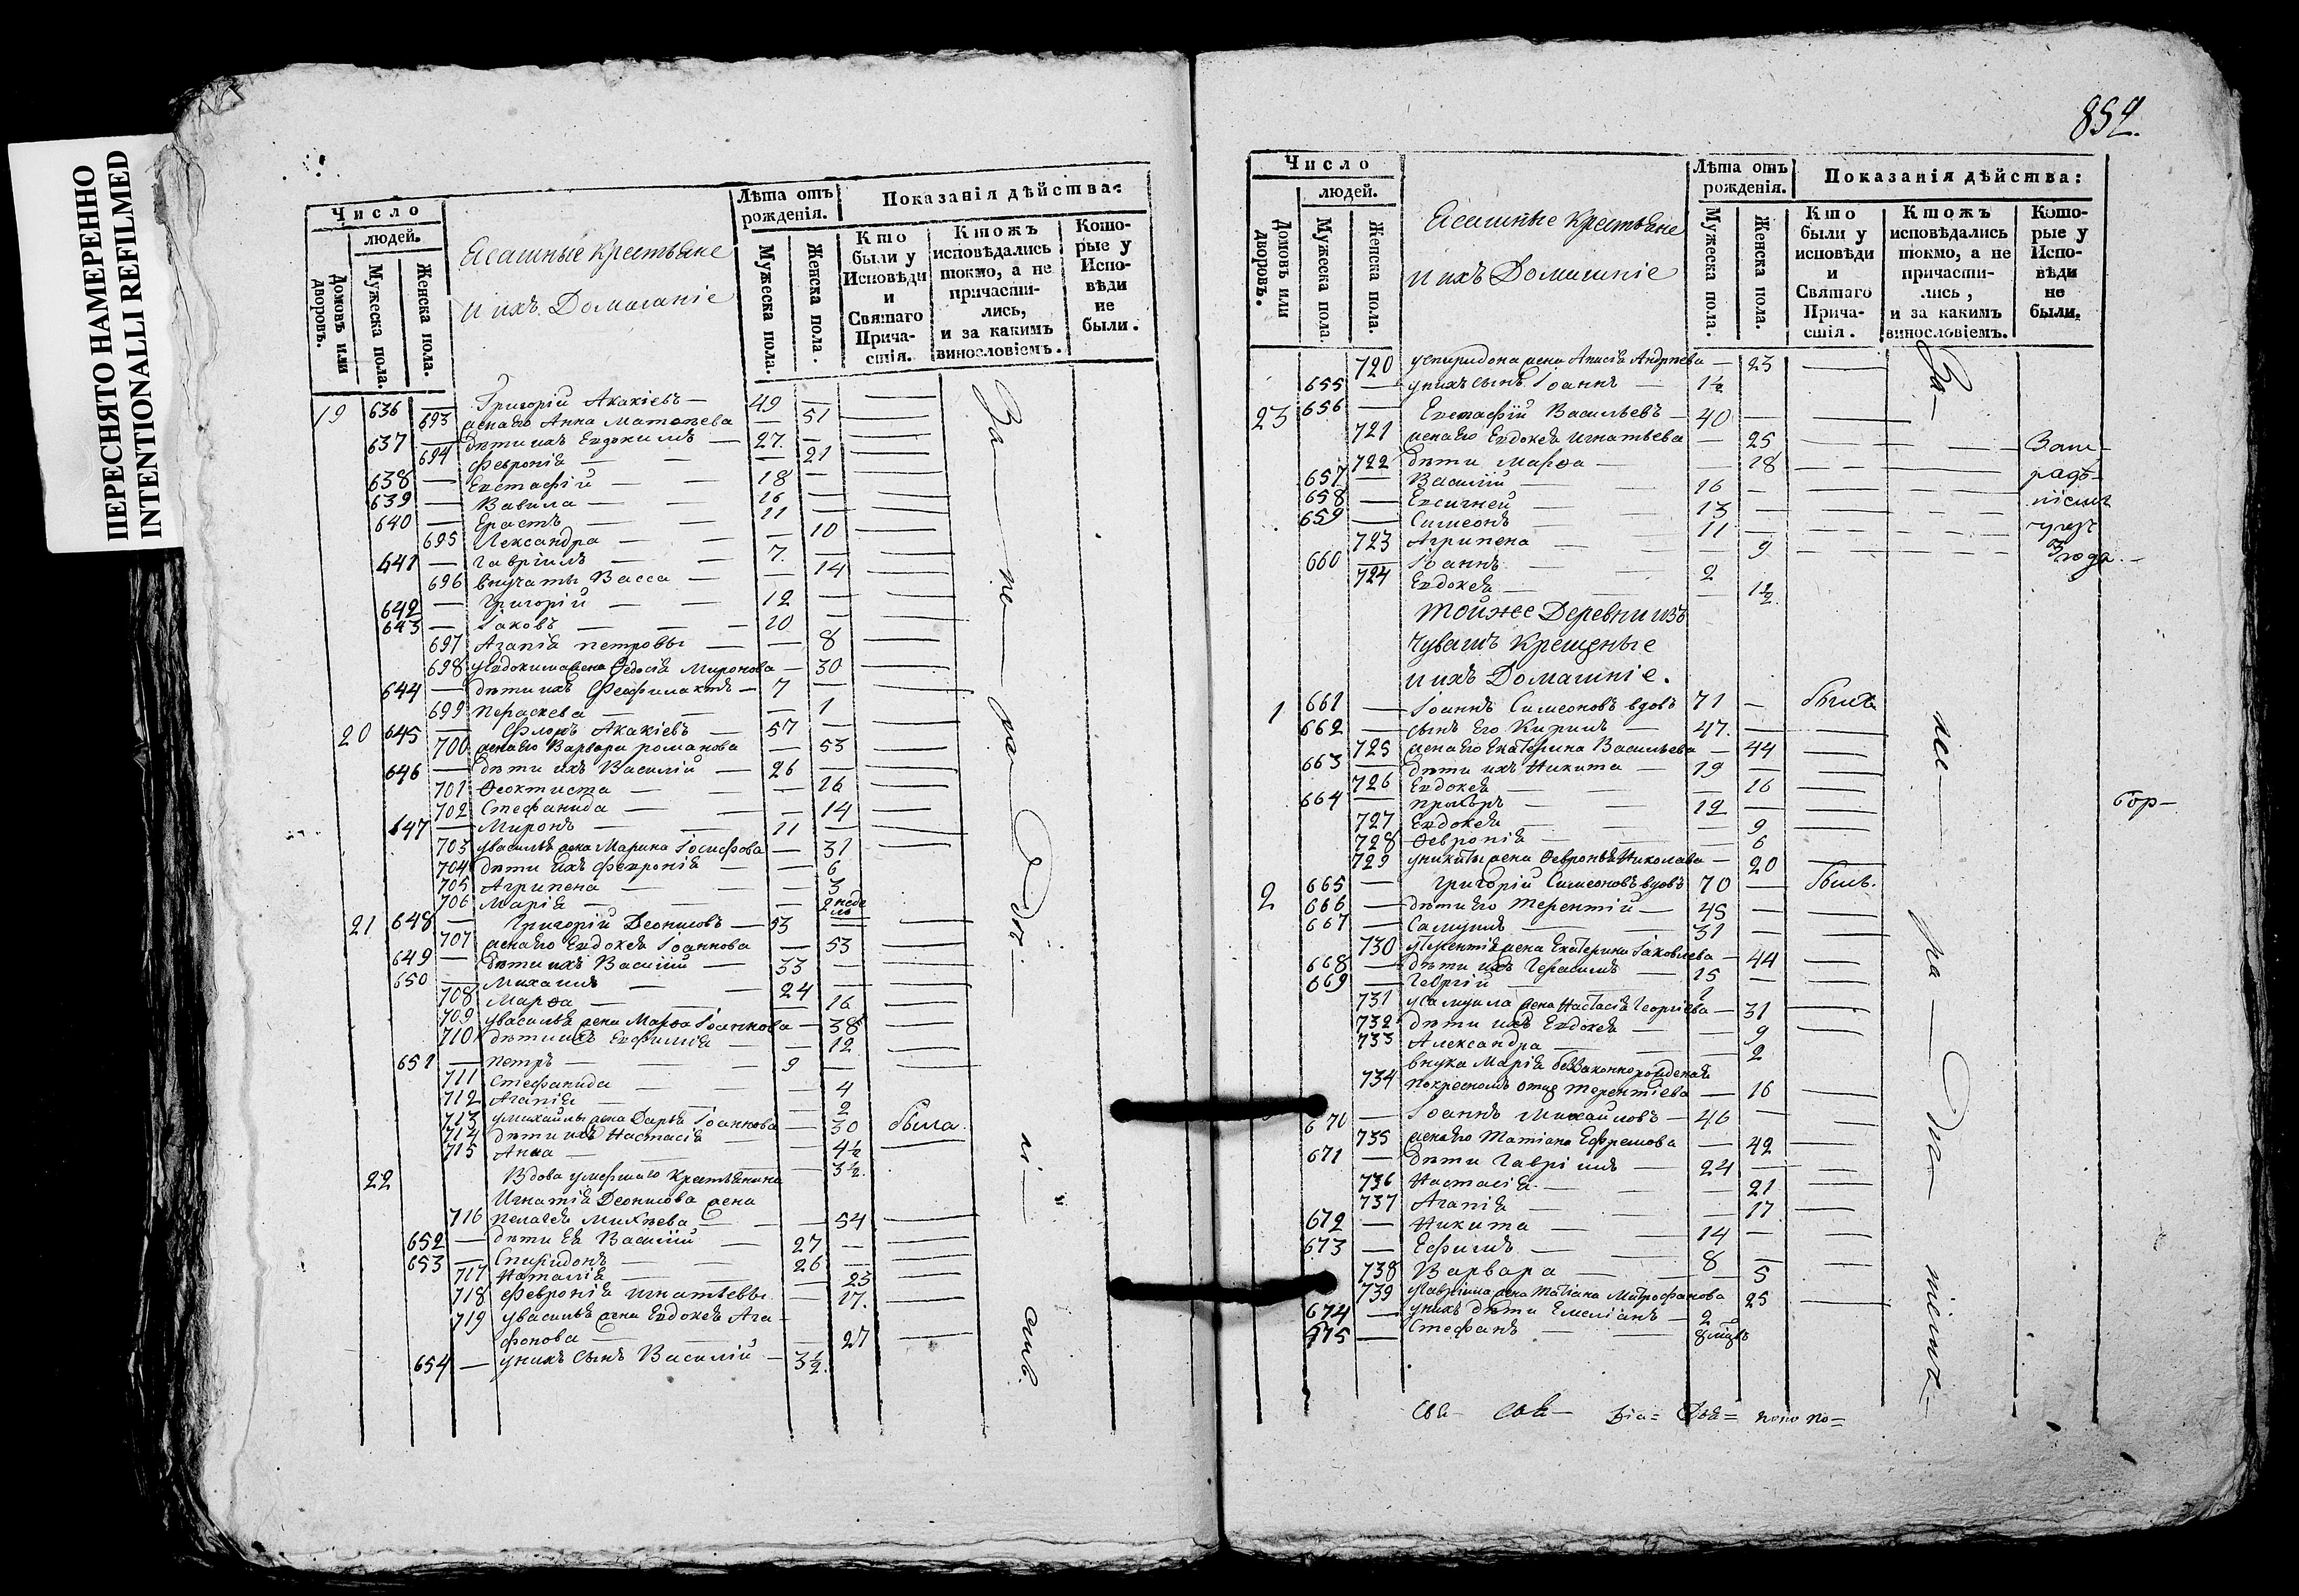 ПЕРЕСНЯТО НАМЕРЕННО
INTENTIONALLI REFILMED
Число
людей.
Домовъ или дворовъ.
Мужеска пола.
Женска пола.
Ясашные крестьяне
и ихъ Домашніе
Лѣта отъ рожденія.
Мужеска пола.
Женска пола.
Показанія дѣйства:
Кто были у Исповѣди и Святаго Причастія.
Ктожъ исповѣдались токмо, а не причастились, и за какимъ винословіемъ.
Которые у Исповѣди не были.
19 636 — Григорій Акакіевъ — 49 —
693 жена его Анна Матвеева — 51
637 — дѣти ихъ Евдокимъ — 27. —
694 Февронія — — — 21
638 — Евстафій — — 18 —
639 — Вавила — — 16 —
640 — Ерастъ — — 11 —
695 Александра — — — 10
641 — Гавріилъ — — 7. —
696 внучаты Васса — — 14
642 — Григорій — — 12 —
643 — Іаковъ — — 10 —
697 Агапія петровы — — 8
698 у Евдокима жена Федосія Миронова — 30
644 — дѣти ихъ Феофилактъ — 7 —
699 Параскева — — — 1
20 645 — Флоръ Акакіевъ — 57 —
700 жена его Варвара романова — 53
646 — дѣти ихъ Василій — 26 —
701 Феоктиста — — — 16
702 Стефанида — — 14
647 — Миронъ — — 11 —
703 у василья жена Марина Іосифова — 31
704 дѣти ихъ Февронія — — 6
705 Агрипена — — — 3
706 Марія — — — 2 недель
21 648 — Григорій Деонисовъ — 53 —
707 жена его Евдокея Іоаннова — 53
649 — дѣти ихъ Василій — 33 —
650 — Михаилъ — — 24 —
708 Марѳа — — — 16
709 у василья жена Марѳа Іоаннова — 38
710 дѣти ихъ Евфимія — — 12
651 — петръ — — 9 —
711 Стефанида — — — 4
712 Агапія — — — 2
713 у михайлы жена Дарья Іоаннова — 30 была
714 дѣти ихъ Настасія — — 4½
715 Анна — — — 3½.
22 Вдова умершаго крестьянина
Игнатія Деонисова жена
716 пелагея Михеева — — 54
652 — дѣти ея Василій — 27 —
653 — Спиридонъ — — 26 —
717 Наталія — — — 23
718 Февронія игнатьевы — 17.
719 у василья жена Евдокея Ага-
фонова — — — 27
654 — у нихъ сынъ Василій — 3½.
За — по — ра — дѣ — ні — емъ.
854.
Число
людей.
Домовъ или дворовъ.
Мужеска пола.
Женска пола.
Ясашные крестьяне
и ихъ Домашніе
Лѣта отъ рожденія.
Мужеска пола.
Женска пола.
Показанія дѣйства:
Кто были у исповѣди и Святаго Причастія.
Ктожъ исповѣдались токмо, а не причастились, и за какимъ винословіемъ.
Которые у Исповѣди не были.
720 у спиридона жена Анисія Андреева — 23
655 — у нихъ сынъ Іоаннъ — 1½
23 656 — Евстафій Васильевъ — 40 —
721 жена его Евдокея игнатьева — 25
722 дѣти Марѳа — — 18
657 — Василій — — 16 —
658 — Евсигней — — 13 —
659 — Симеонъ — — 11 —
723 Агрипена — — — 9
660 — Іоаннъ — — 2
724 Евдокея — — — 1½.
Тойже Деревни изъ
Чувашъ Крещеные
и ихъ Домашніе.
1 661 — Іоаннъ Симеоновъ вдовъ 71 — былъ
662 — сынъ его Кирилъ — 47. —
725 жена его Екатерина Васильева — 44
663 — дѣти ихъ Никита — 19 —
726 Евдокея — — — 16
664 — — — 12 —
727 Евдокея — — — 9
728 Февронія — — — 6
729 у никиты жена Февронья Николаева — 20
2 665 — григорій Симеоновъ вдовъ 70 — былъ.
666 — дѣти его терентій — 45 —
667 — Самуилъ — — 31 —
730 у терентія жена Екатерина Іаковлева — 44
668 — дѣти ихъ Герасимъ — 15 —
669 — Георгій — —
731 у самуила жена Настасія Георгіева — 31
732 дѣти ихъ Евдокея — — 9
733 Александра — — — 2
внука Марія беззаконнорожденая
734 по кресномъ отце терентіева — 16
670 — Іоаннъ михайловъ — 46 —
735 жена его Татіана Ефремова — 42
671 — дѣти Гавріилъ — 24 —
736 Настасія — — — 21
737 Агапія — — — 17
672 — Никита — — 14 —
673 — Ефимъ — — 8 —
738 Варвара — — — 5
739 у Гавріила жена Татіана Митрофанова 25
674 — у нихъ дѣти Емеліанъ — 2
675 — Стефанъ — — 8 мцовъ